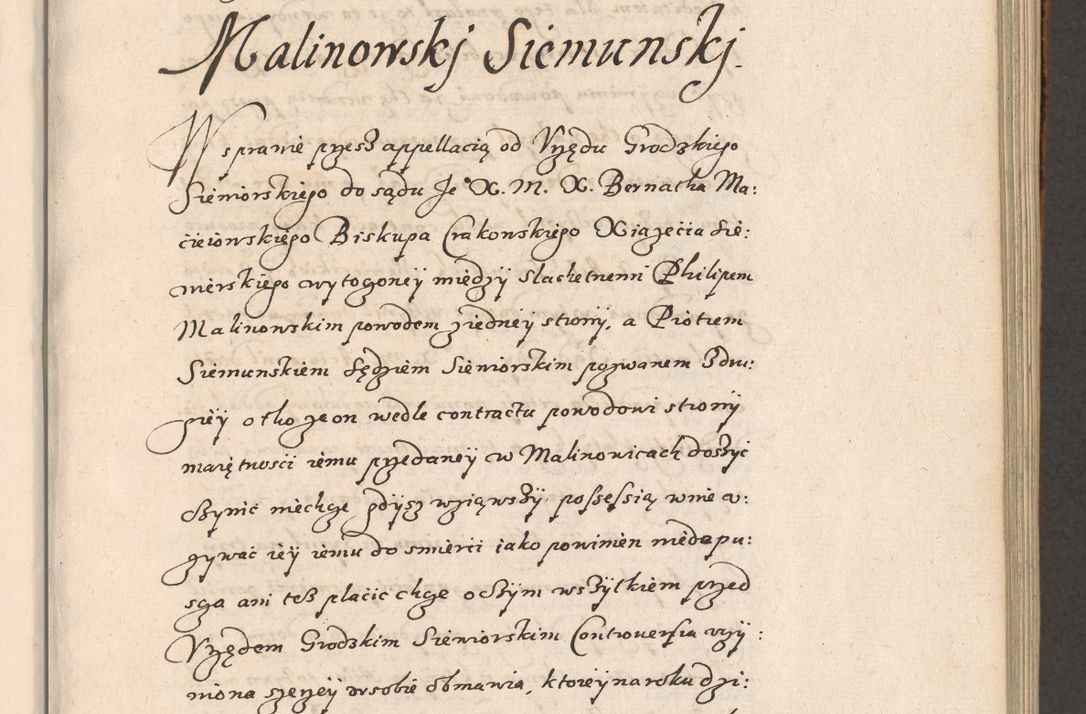 Malinowskj Siemunskj.
W sprawie przesz appellacią od Vrzędu Grodzkiego
Siewiorskiego do sądu Je° X. M. X. Bernatha Ma:
cieiowskiego Biskupa Crakowskiego Xiążęcia Sie:
wierskiego wytogoney miedzy Slachetnemi Philipem
Malinowskim powodem ziedney strony, a Piotrem
Siemunskiem Sędziem Siewiorskim pozwanem z dru:
giey o tho ze on wedle contractu powodowi strony
maiętnosci iemu przedaney w Malinowicach doszyc
czynic niechge gdysz wziąwszy possessią w nie v:
zywać iey iemu do smierci iako powinien niedopu:
sga ani tesz placić chge o czym wszytkiem przed
Vrzędem Grodzkim Siewiorskim Controuersia vczy:
niona szerzey w sobie obmawia, ktorey na roku dzi: